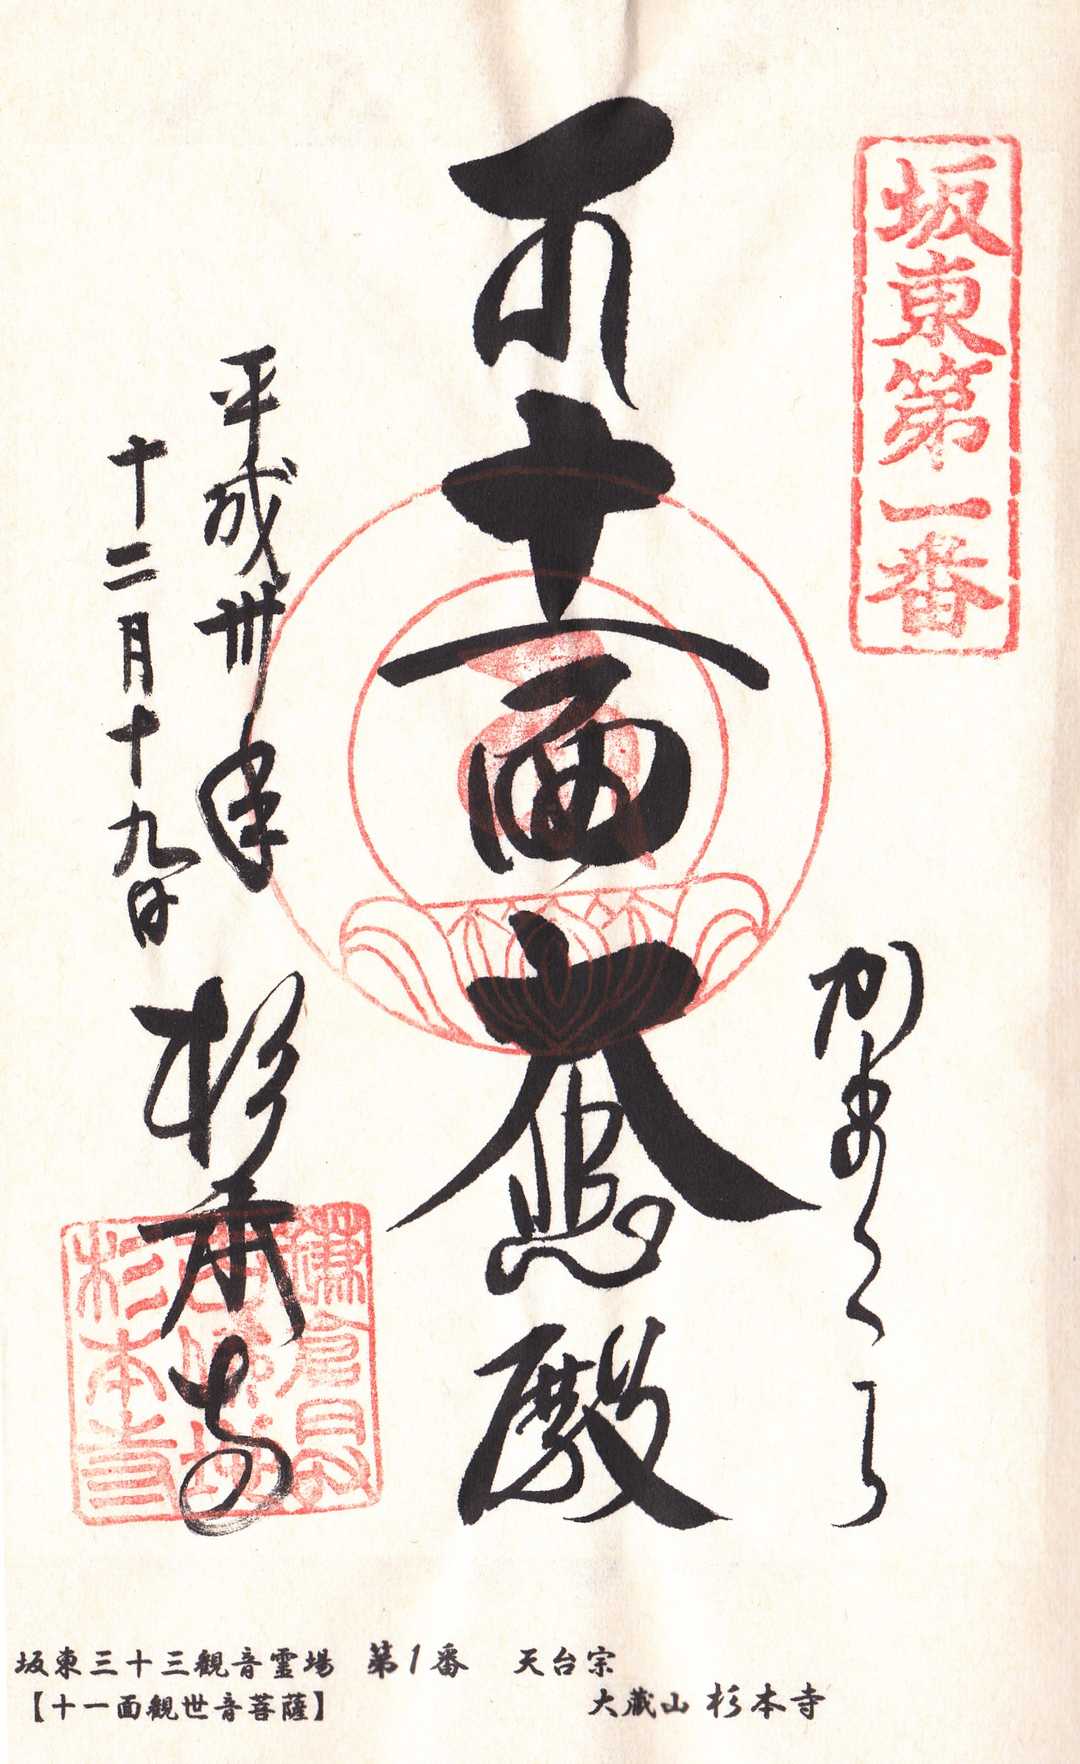 坂東第一番
十一面大悲殿
平成卅年
十二月十九日
杉本寺
杉本寺
坂東三十三観音霊場 第1番 天台宗
【十一面観世音菩薩】 大蔵山 杉本寺